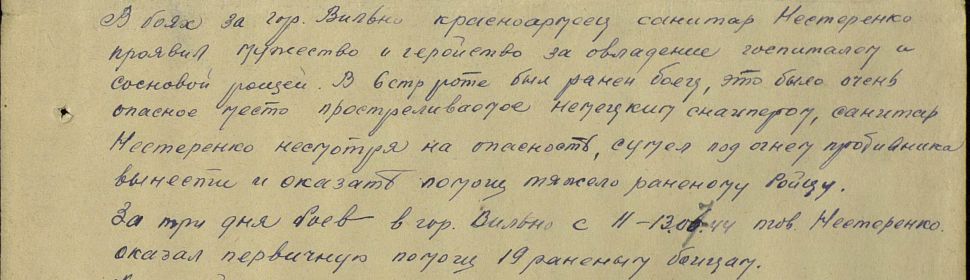 В боях за гор. Вильно красноармеец санитар Нестеренко
проявил мужество и геройство за овладение госпиталем и
сосновой рощей. В 6 стр роте был ранен боец, это было очень
опасное место простреливаемое немецким снайпером, санитар
Нестеренко несмотря на опасность, сумел под огнем противника
вынести и оказать помощь тяжело раненому бойцу.
За три дня боев в гор. Вильно с 11-13.07.44 тов. Нестеренко
оказал первичную помощь 19 раненым бойцам.